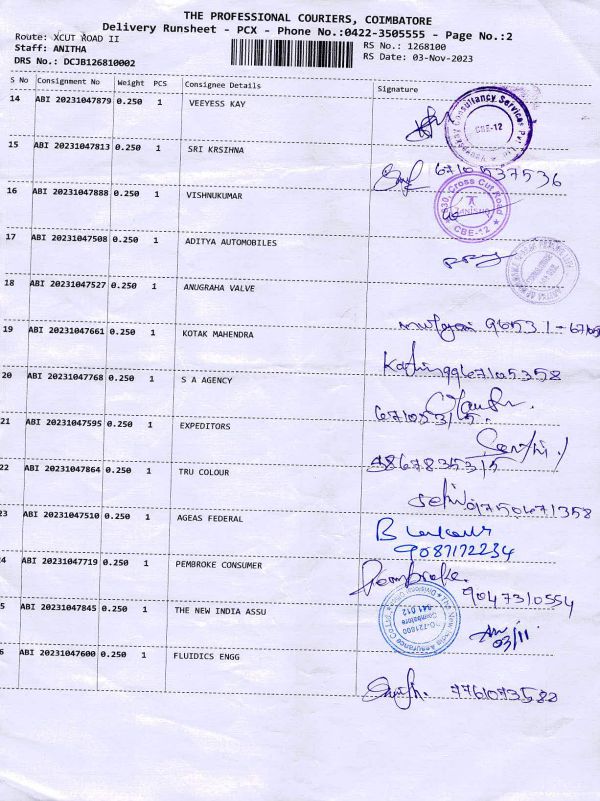 THE PROFESSIONAL COURIERS, COIMBATORE
Delivery Runsheet - PCX - Phone No.:0422-3505555 - Page No.:2
Route: XCUT ROAD II
RS No.: 1268100
Staff: ANITHA
RS Date: 03-Nov-2023
DRS No.: DCJB126810002
S No Consignment No Weight PCS Consignee Details Signature
14 ABI 20231047879 0.250 1 VEEYESS KAY
Consultancy Services
CBE-12
15 ABI 20231047813 0.250 1 SRI KRSIHNA
6710537536
16 ABI 20231047888 0.250 1 VISHNUKUMAR
Cross Cut Road
CBE-12
17 ABI 20231047508 0.250 1 ADITYA AUTOMOBILES
18 ABI 20231047527 0.250 1 ANUGRAHA VALVE
19 ABI 20231047661 0.250 1 KOTAK MAHENDRA
9967105358
20 ABI 20231047768 0.250 1 S A AGENCY
21 ABI 20231047595 0.250 1 EXPEDITORS
22 ABI 20231047864 0.250 1 TRU COLOUR
01750671358
3 ABI 20231047510 0.250 1 AGEAS FEDERAL
9087172234
4 ABI 20231047719 0.250 1 PEMBROKE CONSUMER
Pembroke
9047310554
5 ABI 20231047845 0.250 1 THE NEW INDIA ASSU
Coimbatore
03/11
6 ABI 20231047600 0.250 1 FLUIDICS ENGG